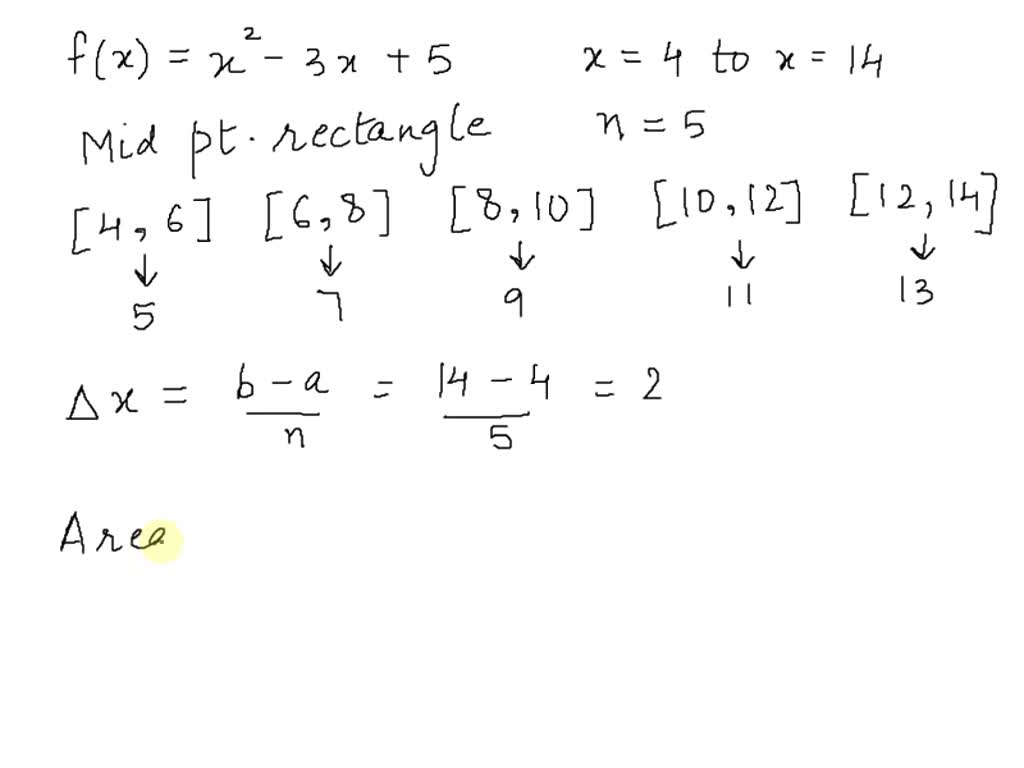 f(x) = x² - 3x + 5 x = 4 to x = 14
Mid pt. rectangle n = 5
[4, 6] [6, 8] [8, 10] [10, 12] [12, 14]
↓ ↓ ↓ ↓ ↓
5 7 9 11 13
Δx = b - a / n = 14 - 4 / 5 = 2
Area